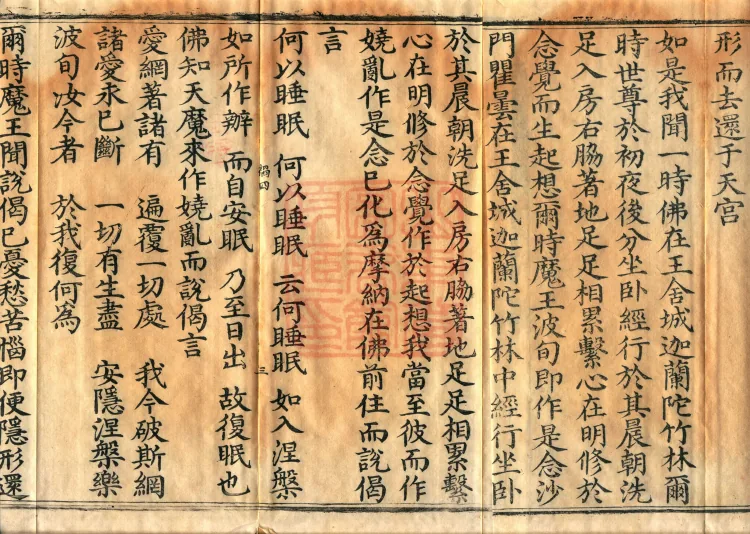 形而去還于天宮
如是我聞一時佛在王舍城迦蘭陀竹林爾
時世尊於初夜後分坐卧經行於其晨朝洗
足入房右脇著地足足相累繫心在明修於
念覺而生起想爾時魔王波旬即作是念沙
門瞿曇在王舍城迦蘭陀竹林中經行坐卧
於其晨朝洗足入房右脇著地足足相累繫
心在明修於念覺作於起想我當至彼而作
嬈亂作是念已化為摩納在佛前住而說偈
言
何以睡眠 何以睡眠 云何睡眠 如入涅槃
如所作辦 而自安眠 乃至日出 故復眠也
佛知天魔來作嬈亂而說偈言
愛網著諸有 遍覆一切處 我今破斯網
諸愛永已斷 一切有生盡 安隱涅槃樂
波旬汝今者 於我復何為
爾時魔王聞說偈已憂愁苦惱即便隱形還